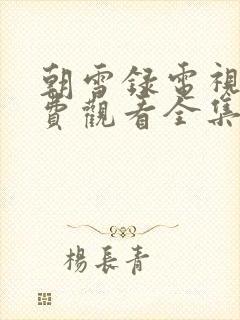 朝雪録電視
費觀看全集
楊長青